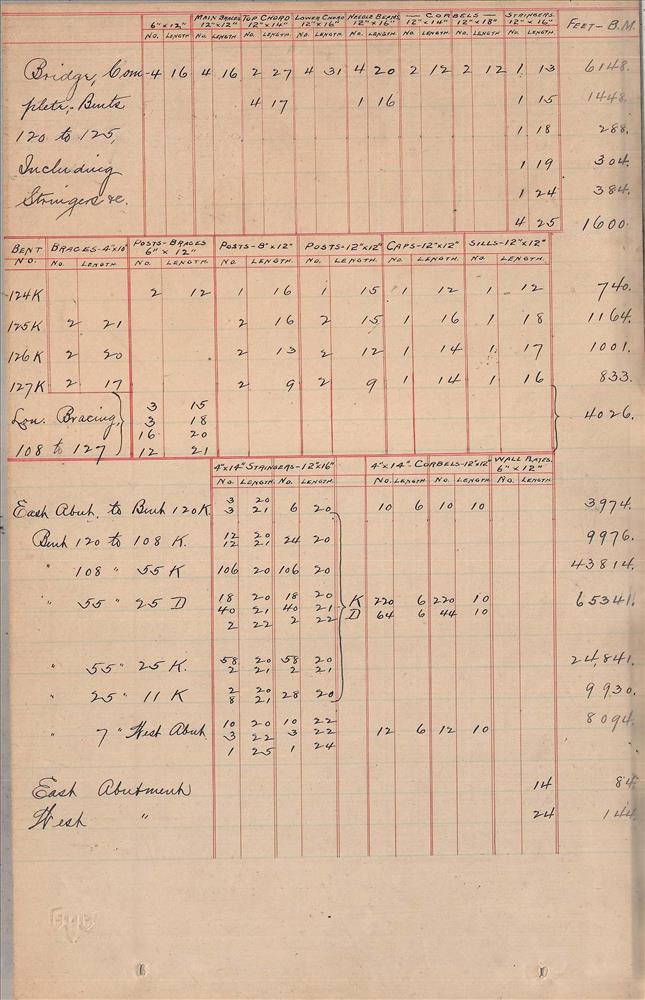 6"x12" MAIN BRACES 12"x12" TOP CHORD 12"x14" LOWER CHORD 12"x16" NEEDLE BEAMS 12"x16" — CORBELS — 12"x14" 12"x18" STRINGERS 12"x16" FEET-B.M.
NO. LENGTH NO. LENGTH NO. LENGTH. NO. LENGTH. NO. LENGTH. NO. LENGTH NO. LENGTH NO. LENGTH.
Bridge, Com- 4 16 4 16 2 27 4 31 4 20 2 12 2 12 1 13 6148.
plete,- Bents 4 17 1 16 1 15 1448.
120 to 125, 1 18 288.
Including 1 19 304.
Stringers &c. 1 24 384.
4 25 1600.
BENT NO. BRACES-4"x10" POSTS-BRACES 6" x 12" POSTS-8"x12" POSTS-12"x12" CAPS-12"x12" SILLS-12"x12"
NO. LENGTH. NO. LENGTH. NO. LENGTH. NO. LENGTH. NO. LENGTH. NO. LENGTH.
124K 2 12 1 16 1 15 1 12 1 12 740.
125K 2 21 2 16 2 15 1 16 1 18 1164.
126K 2 20 2 13 2 12 1 14 1 17 1001.
127K 2 17 2 9 2 9 1 14 1 16 833.
Lon. Bracing, 3 15
3 18 4026.
16 20
108 to 127 12 21
4"x14" STRINGERS-12"x16" 4"x14" CORBELS-12"x12" WALL PLATES. 6" x 12"
NO. LENGTH NO. LENGTH. NO. LENGTH NO. LENGTH NO. LENGTH.
3 20
East Abut. to Bent 120K 3 21 6 20 10 6 10 10 3974.
Bent 120 to 108 K. 12 20 24 20 9976.
12 21
" 108 " 55 K 106 20 106 20 43814.
" 55 " 25 D 18 20 18 20 K 220 6 220 10 65341.
40 21 40 21 D 64 6 44 10
2 22 2 22
" 55 " 25 K. 58 20 58 20 24,841.
2 21 2 21
" 25 " 11 K 2 20 28 20 9930.
8 21
" 7 " West Abut. 10 20 10 22 8094.
3 22 3 22 12 6 12 10
1 25 1 24
East Abutment 14 84.
West " 24 144.